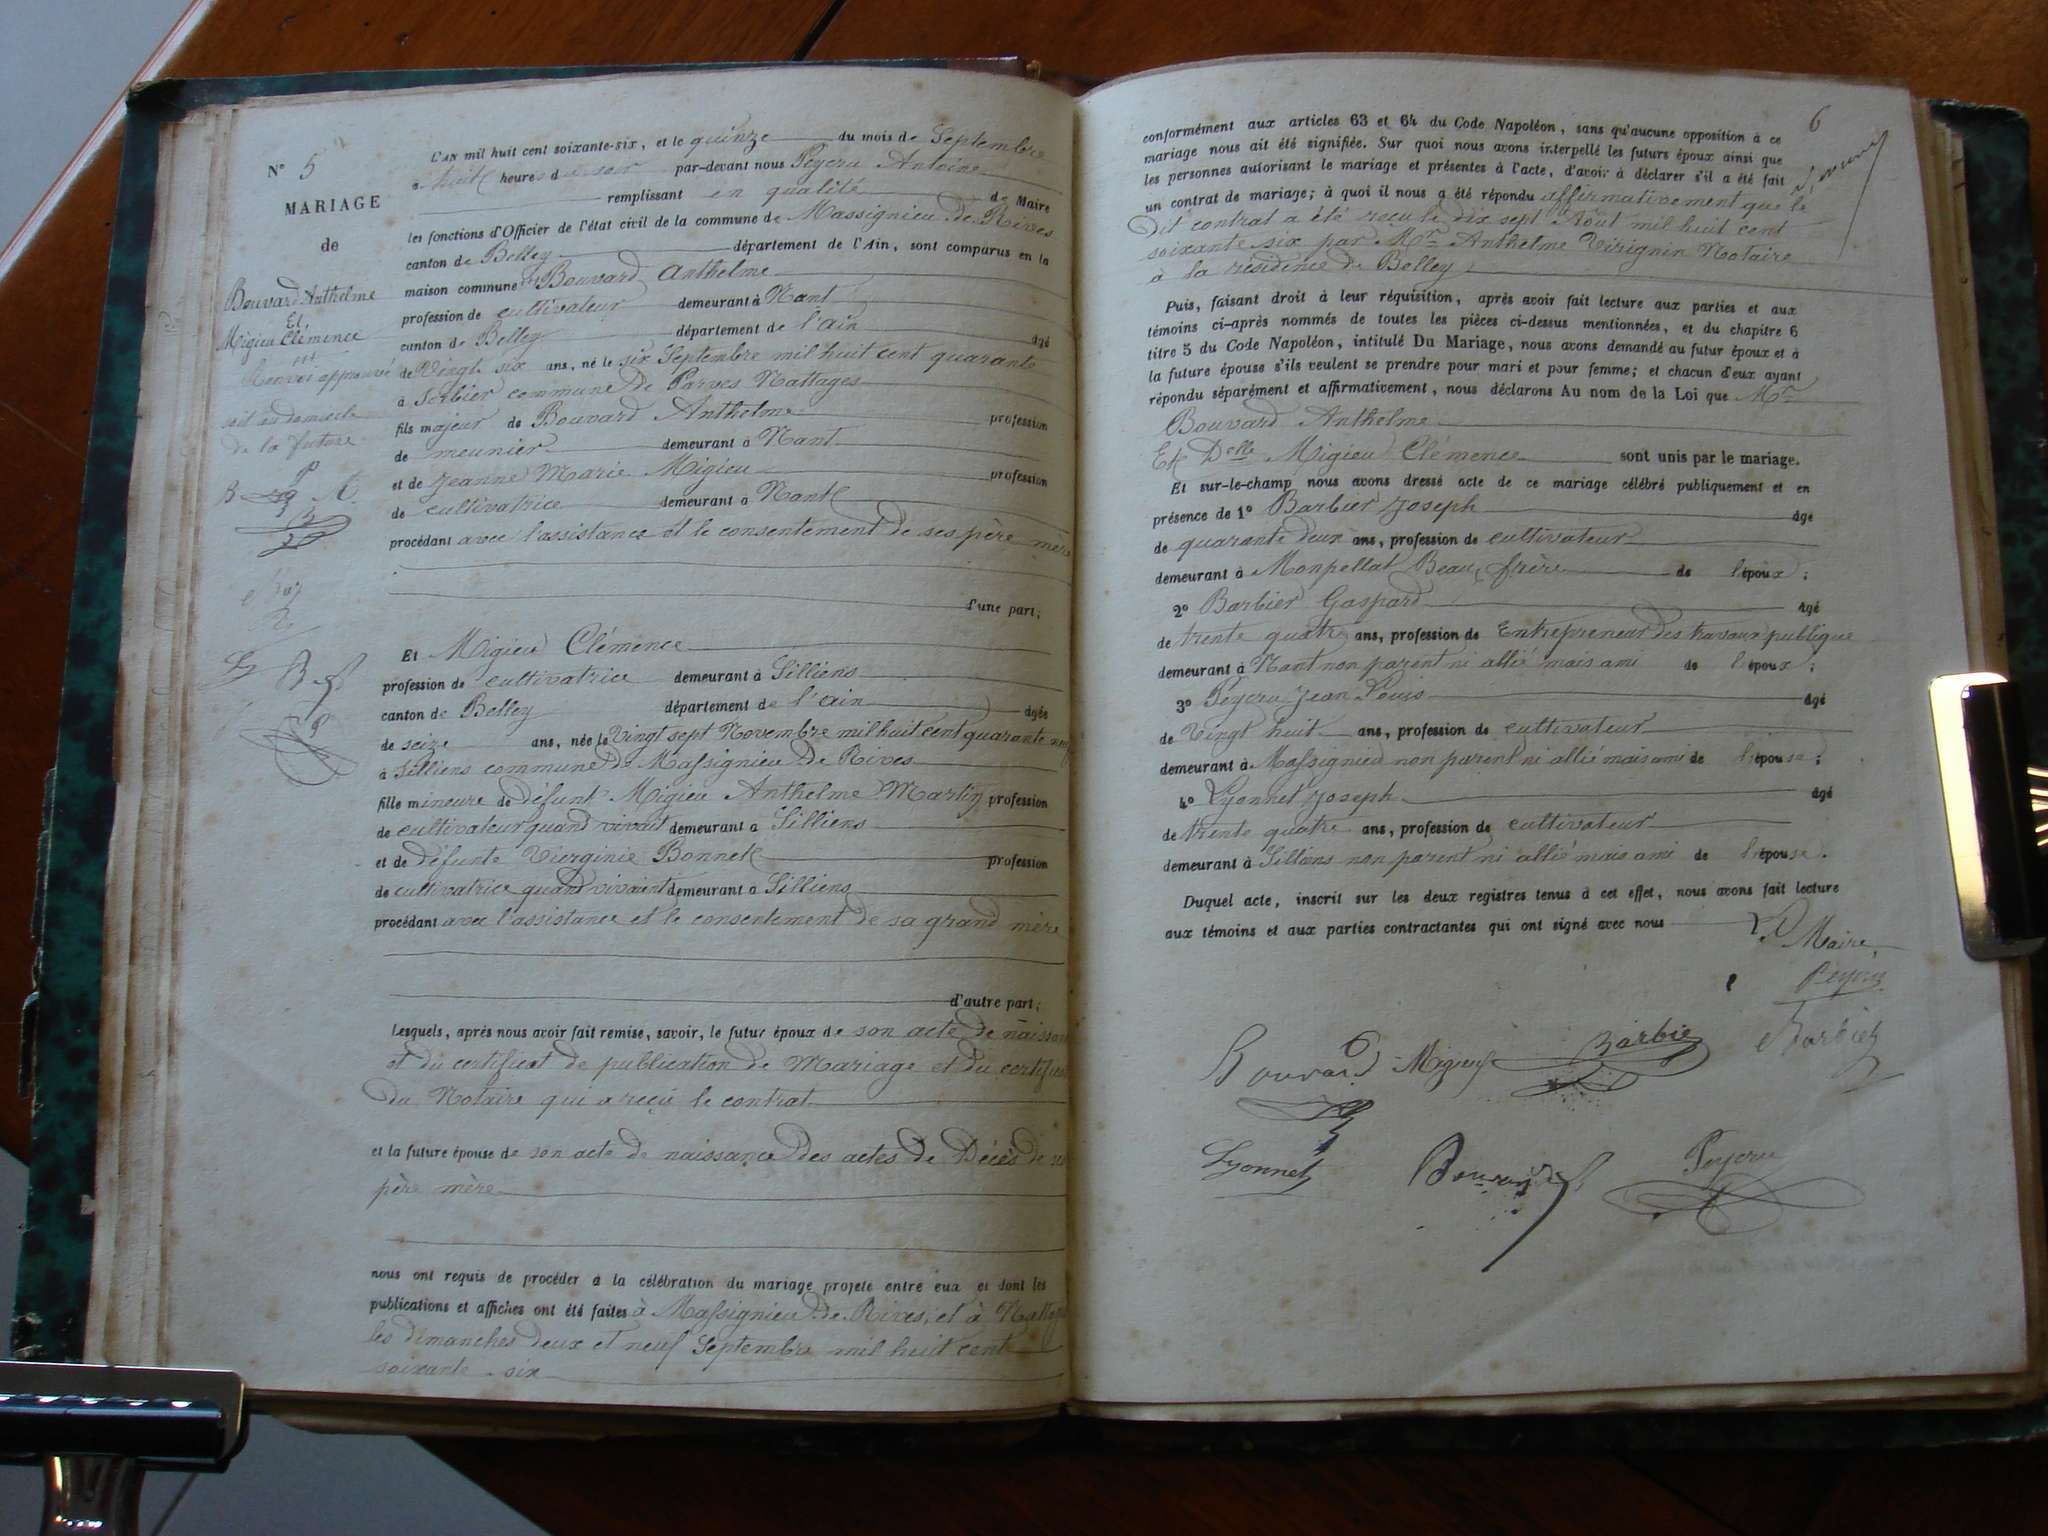 N° 5
MARIAGE
de
Bouvard Anthelme
Et
Migieu Clémence
Renvoi approuvé
soit au domicile
de la future
L'AN mil huit cent soixante-six, et le quinze du mois de Septembre
à huit heures du soir par-devant nous Peyeru Antoine
remplissant en qualité de Maire
les fonctions d'Officier de l'état civil de la commune de Massignieu de Rives
canton de Belley département de l'Ain, sont comparus en la
maison commune Bouvard Anthelme
profession de cultivateur demeurant à Nant
canton de Belley département de l'ain âgé
de Vingt six ans, né le six Septembre mil huit cent quarante
à Sorbier commune de Parves Nattages
fils majeur de Bouvard Anthelme profession
de meunier demeurant à Nant
et de Jeanne Marie Migieu profession
de cultivatrice demeurant à Nant
procédant avec l'assistance et le consentement de ses père mère
d'une part;
Et Migieu Clémence
profession de cultivatrice demeurant à Silliens
canton de Belley département de l'ain âgée
de seize ans, née le Vingt sept Novembre mil huit cent quarante neuf
à Silliens commune de Massignieu de Rives
fille mineure de défunt Migieu Anthelme Martin profession
de cultivateur quand vivait demeurant à Silliens
et de défunte Vierginie Bonnet profession
de cultivatrice quand vivaient demeurant à Silliens
procédant avec l'assistance et le consentement de sa grand mère
d'autre part;
Lesquels, après nous avoir fait remise, savoir, le futur époux de son acte de naissan
et du certificat de publication de Mariage et du certificat
du Notaire qui a reçu le contrat
et la future épouse de son acte de naissance des actes de Décès de
père mère
nous ont requis de procéder à la célébration du mariage projeté entre eux et dont les
publications et affiches ont été faites à Massignieu de Rives, et à Nattages
les dimanches deux et neuf Septembre mil huit cent
soixante-six
6
conformément aux articles 63 et 64 du Code Napoléon, sans qu'aucune opposition à ce
mariage nous ait été signifiée. Sur quoi nous avons interpellé les futurs époux ainsi que
les personnes autorisant le mariage et présentes à l'acte, d'avoir à déclarer s'il a été fait
un contrat de mariage; à quoi il nous a été répondu affirmativement que le
Dit contrat a été reçu le dix sept Août mil huit cent
soixante six par Mr Anthelme Virignin Notaire
à la résidence de Belley
Puis, faisant droit à leur réquisition, après avoir fait lecture aux parties et aux
témoins ci-après nommés de toutes les pièces ci-dessus mentionnées, et du chapitre 6
titre 5 du Code Napoléon, intitulé Du Mariage, nous avons demandé au futur époux et à
la future épouse s'ils veulent se prendre pour mari et pour femme; et chacun d'eux ayant
répondu séparément et affirmativement, nous déclarons Au nom de la Loi que Mr
Bouvard Anthelme
Et Delle Migieu Clémence sont unis par le mariage.
Et sur-le-champ nous avons dressé acte de ce mariage célébré publiquement et en
présence de 1° Barbier Joseph âgé
de quarante deux ans, profession de cultivateur
demeurant à Monpellat Beau frère de l'époux;
2° Barbier Gaspard âgé
de trente quatre ans, profession de Entrepreneur des travaux publique
demeurant à Nant non parent ni allié mais ami de l'époux;
3° Peyeru Jean Louis âgé
de Vingt huit ans, profession de cultivateur
demeurant à Massignieu non parent ni allié mais ami de l'épouse;
4° Lyonnet Joseph âgé
de trente quatre ans, profession de cultivateur
demeurant à Silliens non parent ni allié mais ami de l'épouse.
Duquel acte, inscrit sur les deux registres tenus à cet effet, nous avons fait lecture
aux témoins et aux parties contractantes qui ont signé avec nous
Le Maire
Peyeru
Bouvard Migieu Barbier Barbier
Lyonnet Bouvard Peyeru